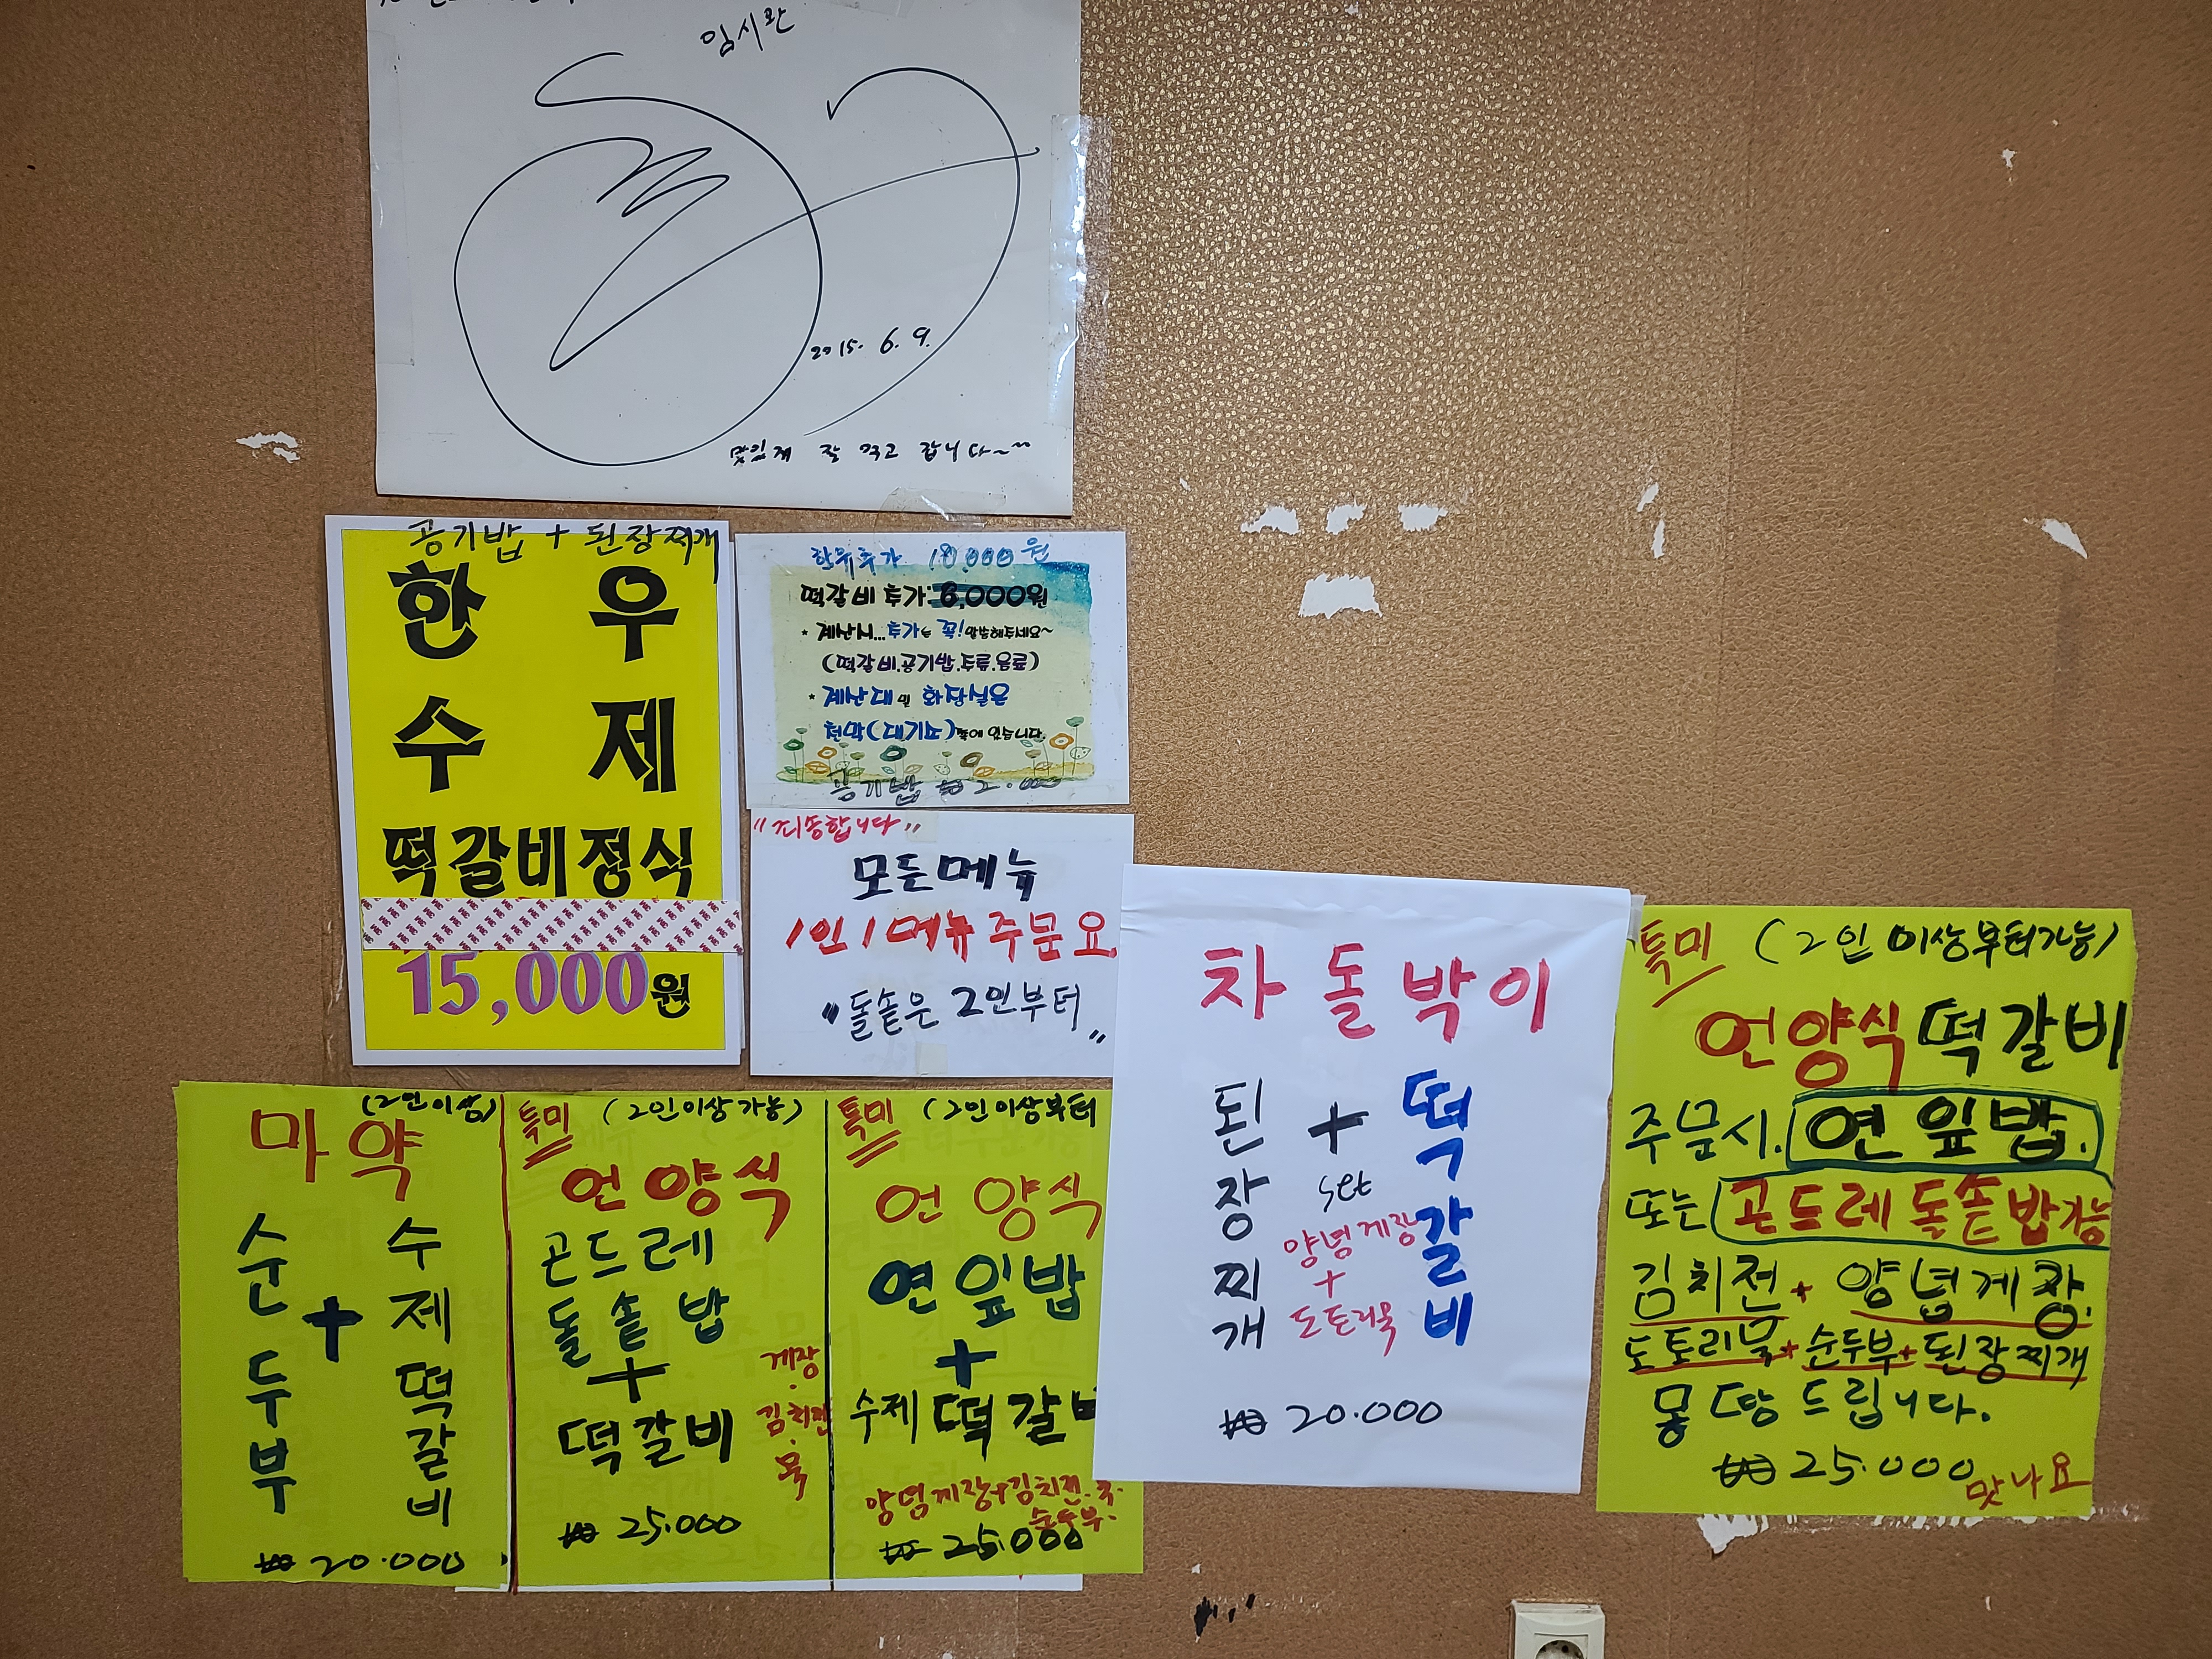 임시완
2015. 6. 9.
맛있게 잘 먹고 갑니다~~
공기밥 + 된장찌개
한우
수제
떡갈비정식
15,000원
한우추가 18,000원
떡갈비추가: 8,000원
* 계산시... 추가는 꼭! 말씀해주세요~
(떡갈비.공기밥.주류.음료)
* 계산대 및 화장실은
천막(대기소)쪽에 있습니다.
공기밥 ₩ 2.000
"죄송합니다"
모든메뉴
1인 1메뉴 주문요
"돌솥은 2인부터"
마약 (2인이상)
순두부 + 수제떡갈비
₩ 20.000
특미 (2인이상가능)
언양식
곤드레
돌솥밥
+
떡갈비
게장.
김치전.
묵
₩ 25.000
특미 (2인이상부터
언양식
연잎밥
+
수제떡갈비
양념게장+김치전.묵.
순두부.
₩ 25.000
차돌박이
된장찌개 + 떡갈비
set
양념게장
+
도토리묵
₩ 20.000
특미 (2인이상부터가능)
언양식떡갈비
주문시. 연잎밥.
또는 곤드레돌솥밥가능
김치전 + 양념게장.
도토리묵+순두부+된장찌개
몽땅드립니다.
₩ 25.000
맛나요